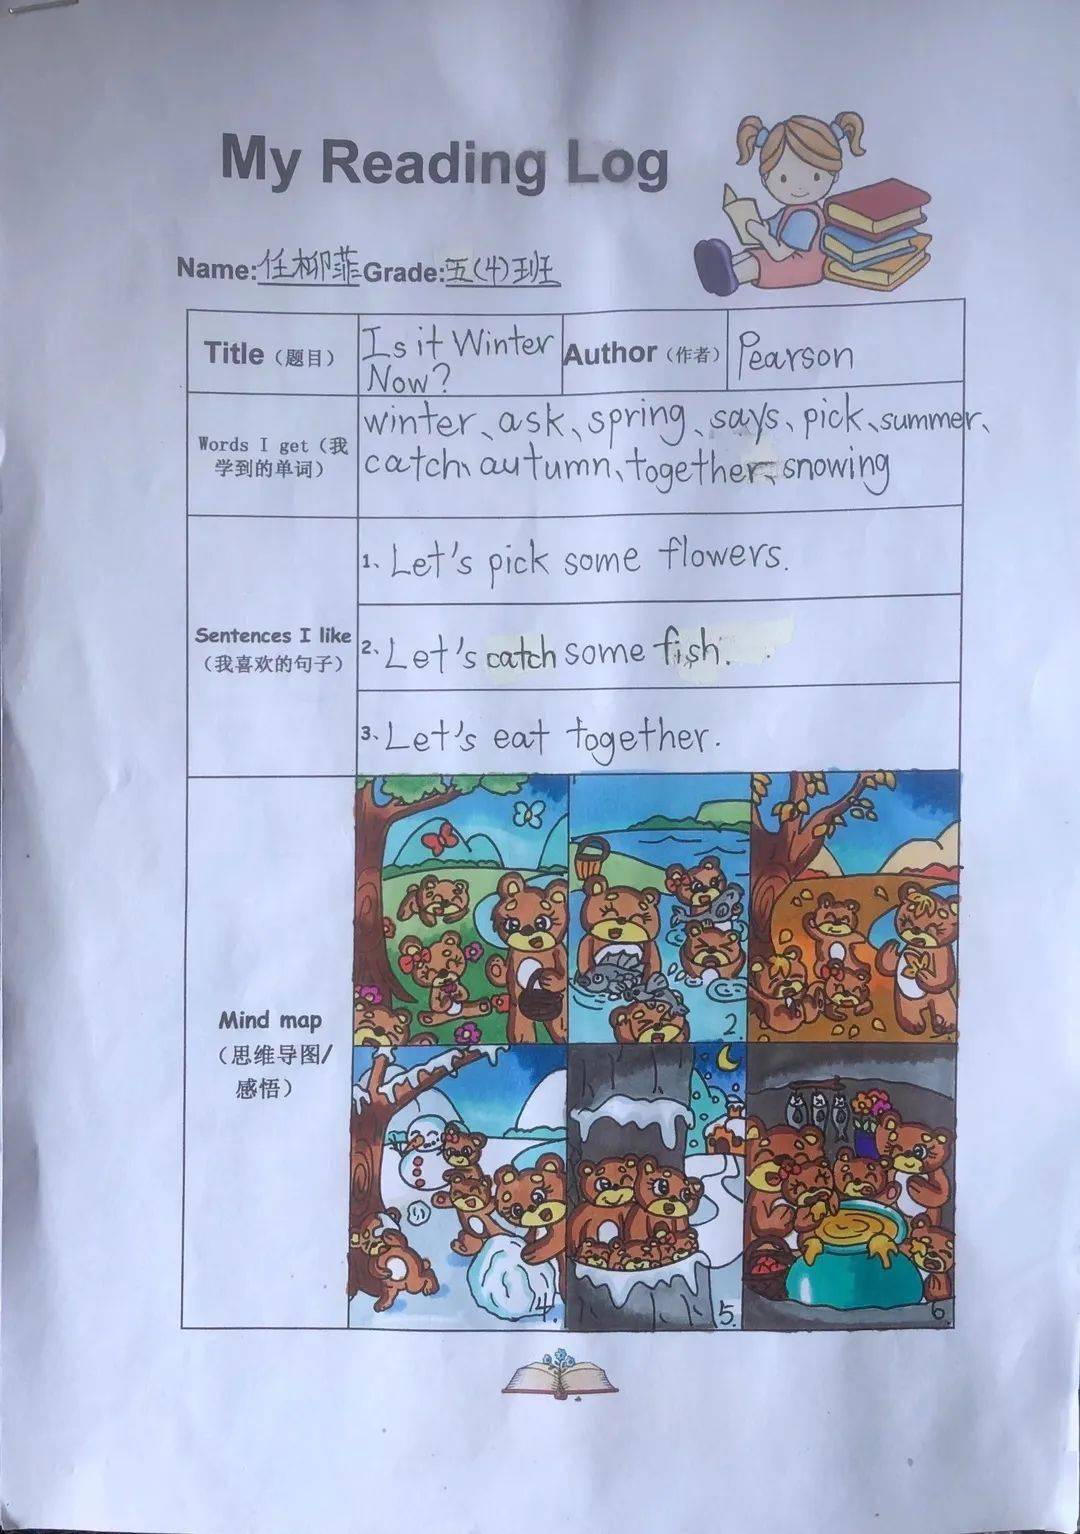 My Reading Log
Name:任柳菲Grade:五(4)班
Title（题目）
Is it Winter
Now?
Author（作者）
Pearson
Words I get（我
学到的单词）
winter、ask、spring、says、pick、summer、
catch、autumn、together、snowing
Sentences I like
（我喜欢的句子）
1、Let's pick some flowers.
2、Let's catch some fish.
3、Let's eat together.
Mind map
（思维导图/
感悟）
2.
4.
5.
6.